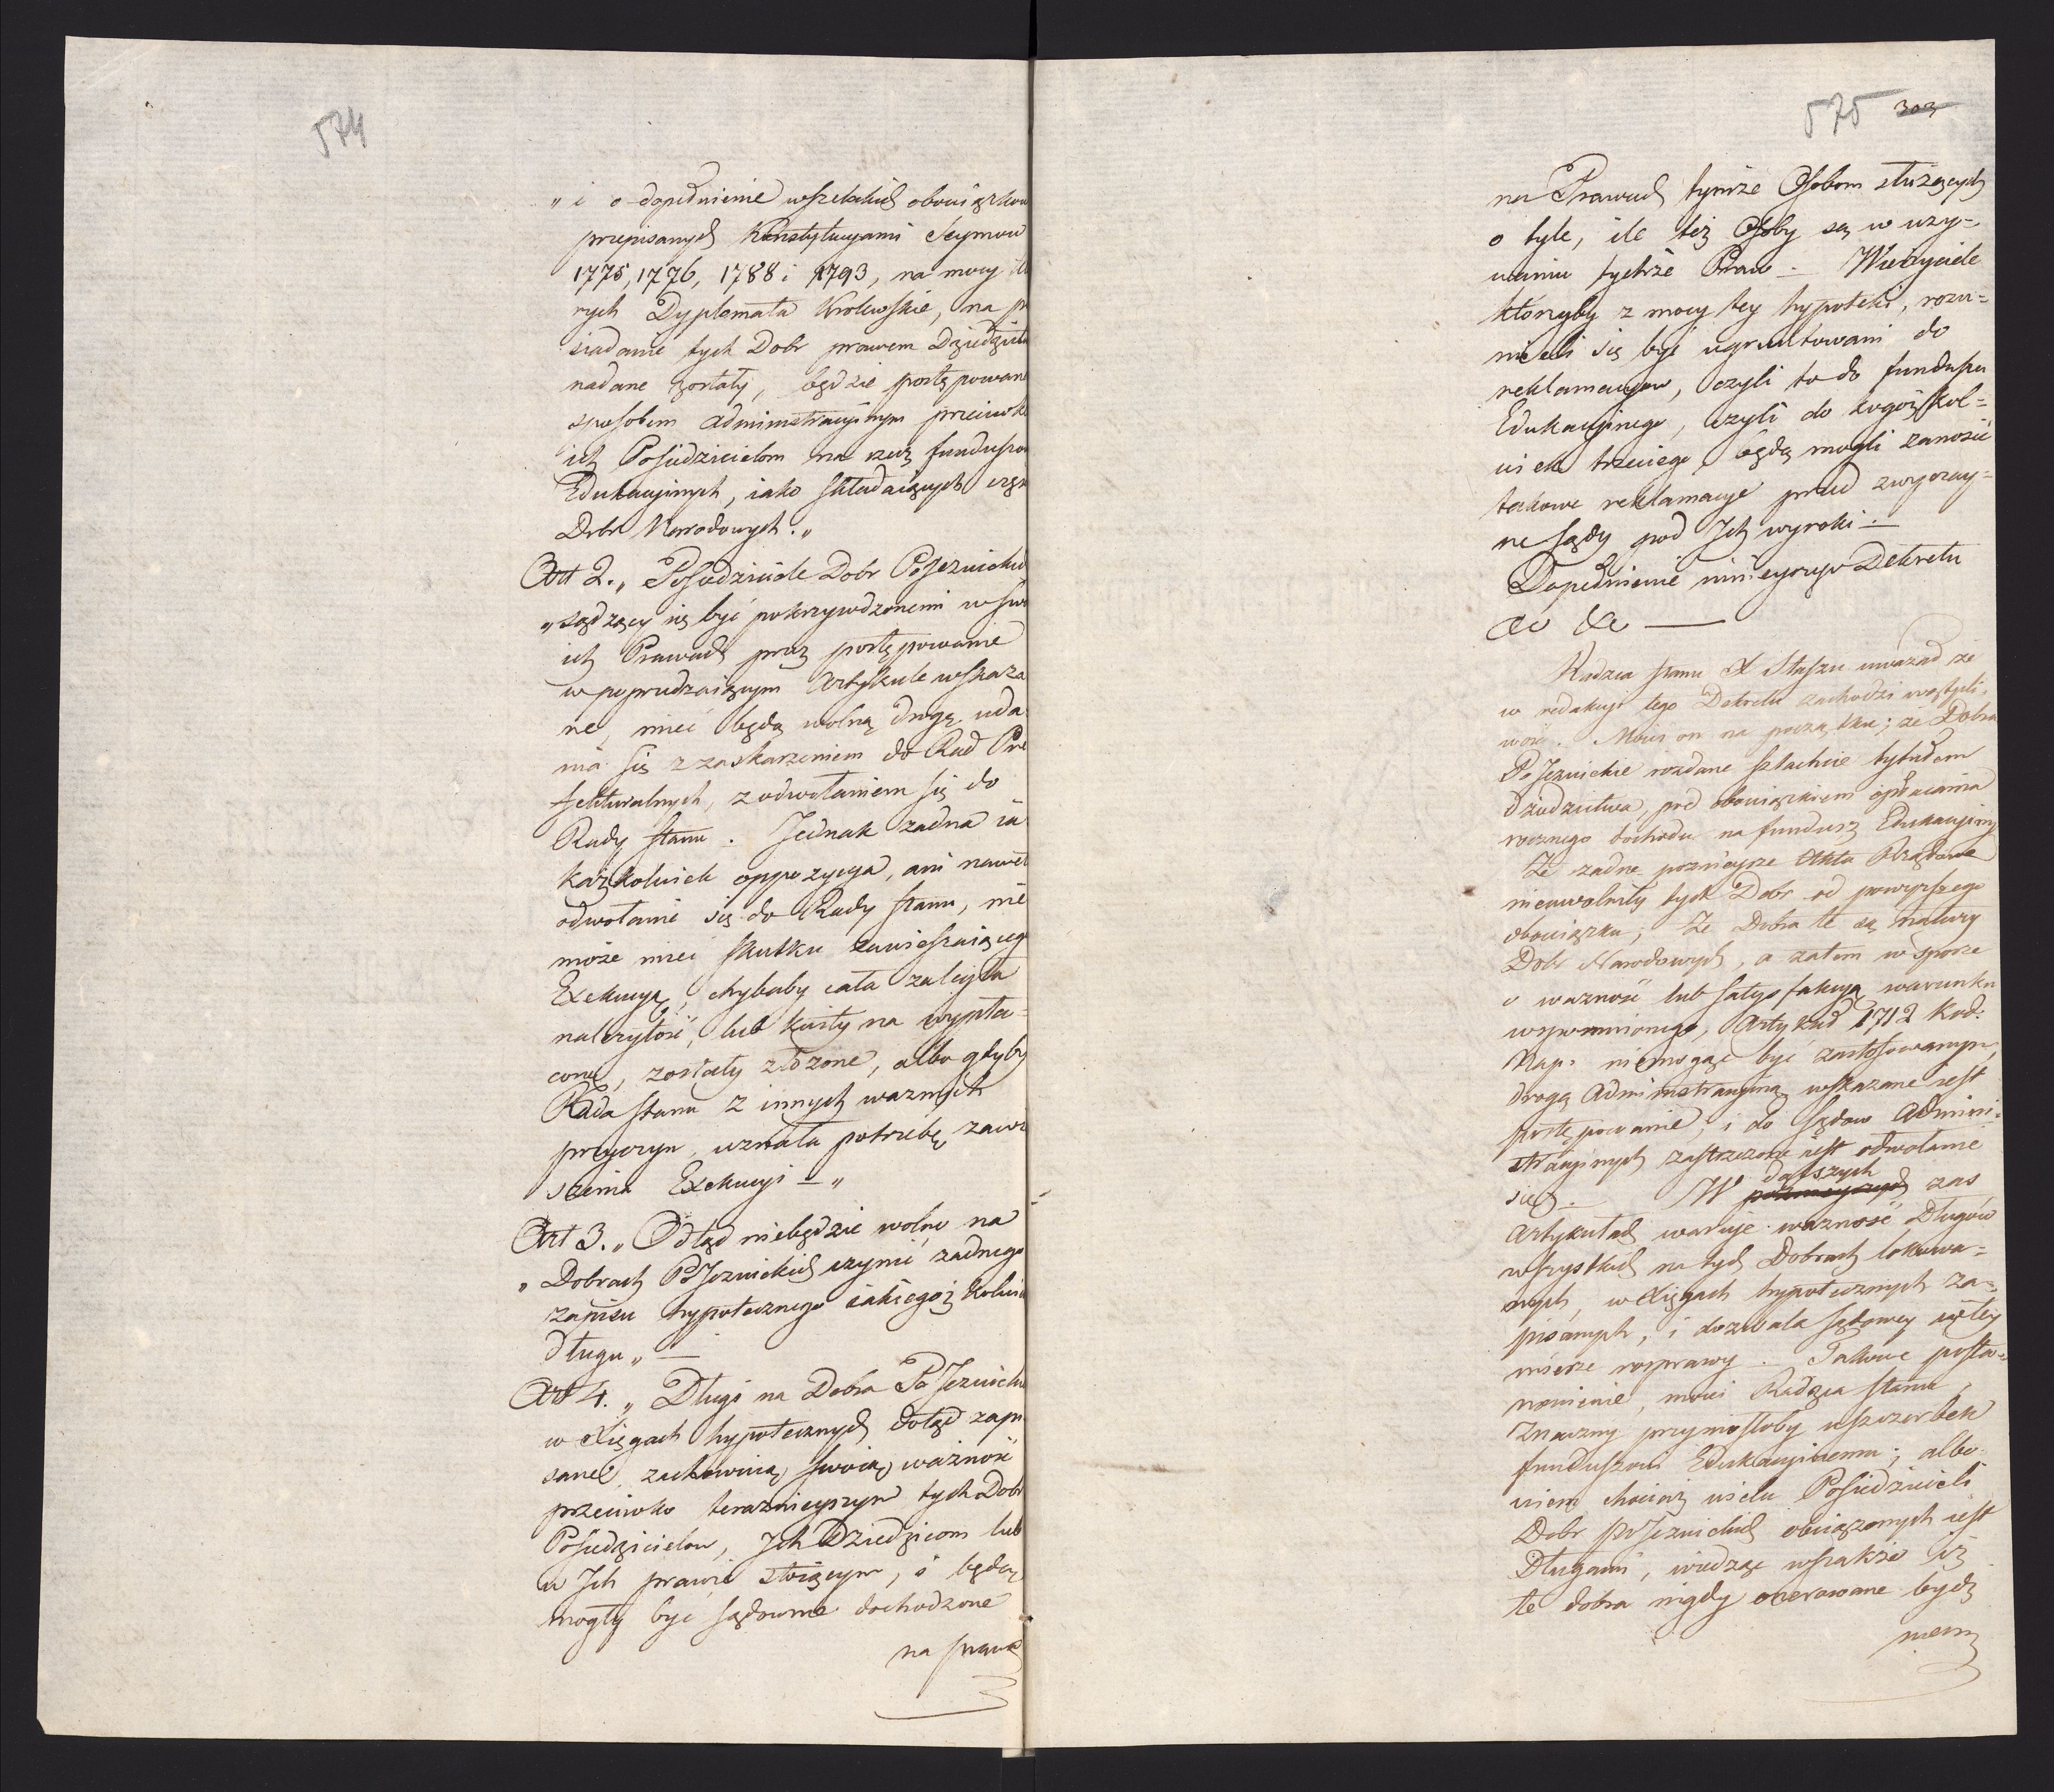 574
„ i o dopełnienie wszelkich obowiązkow
przepisanych Konstytucyami Seymow
1775, 1776, 1788 i 1793, na mocy
rych Dyplomata Krolewskie, na
siadanie tych Dobr prawem
nadane zostały, będzie postępowan
sposobem administracyinym przeciwko
ich Posiedzicielom na rzecz funduszow
Edukacyinych, iako składaiących
Dobr Narodowych.„
Art 2. „ Posiedziciele Dobr PoJezuickich
„ sądzący się być pokrzywdzonemi w swo
ich Prawach przez postępowanie
w poprzedzaiącym Artykule wskaza
ne, mieć będą wolną drogę uda
nia się z zaskarzeniem do Rad Pre
fekturalnych, z odwołaniem się do
Rady Stanu. Jednak zadna ia
kazkolwiek oppozycya, ani nawet
odwołanie się do Rady Stanu, nie
może mieć skutku zawieszaiącego
Exekucyą, chybaby cała zaległa
należytość, lub kwity na wypła=
cone, zostały złożone, albo gdyby
Rada Stanu z innych waznych
przyczyn, uznała potrzebę zawie
szenia Exekucyi — „
Art 3. „ Odtąd niebędzie wolno na
„ Dobrach PoJezuickich czynić zadnego
zapisu hypotecznego iakiegoż kolwiek
długu „ —
Art 4. „ Długi na Dobra PoJezuickie
w Xięgach hypotecznych dotąd zapi
sane, zachowuią swoią ważność
przeciwko teraznieyszym tych Dobr
Posiedzicielom, Ich Dziedzicom lub
w Ich prawie stoiącym, i będą
mogły być sądownie dochodzone
na prawach
575 303
na Prawach tymże Osobom służących
o tyle, ile też Osoby są w uzy=
waniu tychże Praw — Wierzyciele
którzyby z mocy tey hypoteki, rozu=
mieli się być ugruntowani do
reklamacyow, czyli to do funduszu
Edukacyinego, czyli do kogoż kol=
wiek trzeciego, będą mogli zanosić
takowe reklamacye przed zwyczay=
ne Sądy pod Ich wyroki —
Dopełnienie ninieyszego Dekretu
&c &c —
Radzca Stanu X Staszic uważał że
w redakcyi tego Dekretu zachodzi wątpli=
wość. Mówi on na początku; że Dobra
PoJezuickie rozdane szlachcie tytułem
dziedzictwa, pod obowiązkiem opłacania
rocznego dochodu na fundusz Edukacyiny
Że zadne poznieysze Akta Rządowe
nieuwolniły tych Dobr od powyższego
obowiązku; Że Dobra te są natury
Dobr Narodowych, a zatem w sporze
o wazność lub satysfakcyą warunku
wspomnionego, Artykuł 1712 Kod:
Nap: niemogąc być zastosowanym,
drogą Administracyiną wskazane iest
postępowanie, i do Sądow Admini=
stracyinych zastrzeżone iest odwołanie
się. — W dalszych zas
Artykułach waruje ważność Długów
wszystkich na tych Dobrach lokowa=
nych, w Xięgach hypotecznych za=
pisanych, i dozwala sądowey w tey
mierze rozprawy. Takowe posta=
nowienie, mówi Radzca Stanu,
Znaczny przyniosłoby uszczerbek
funduszowi Edukacyinemu; albo
wiem chociaż wielu Posiedzicieli
Dobr poJezuickich obciążonych iest
Długami, wiedząc wszakże iż
te dobra nigdy oderwane bydź